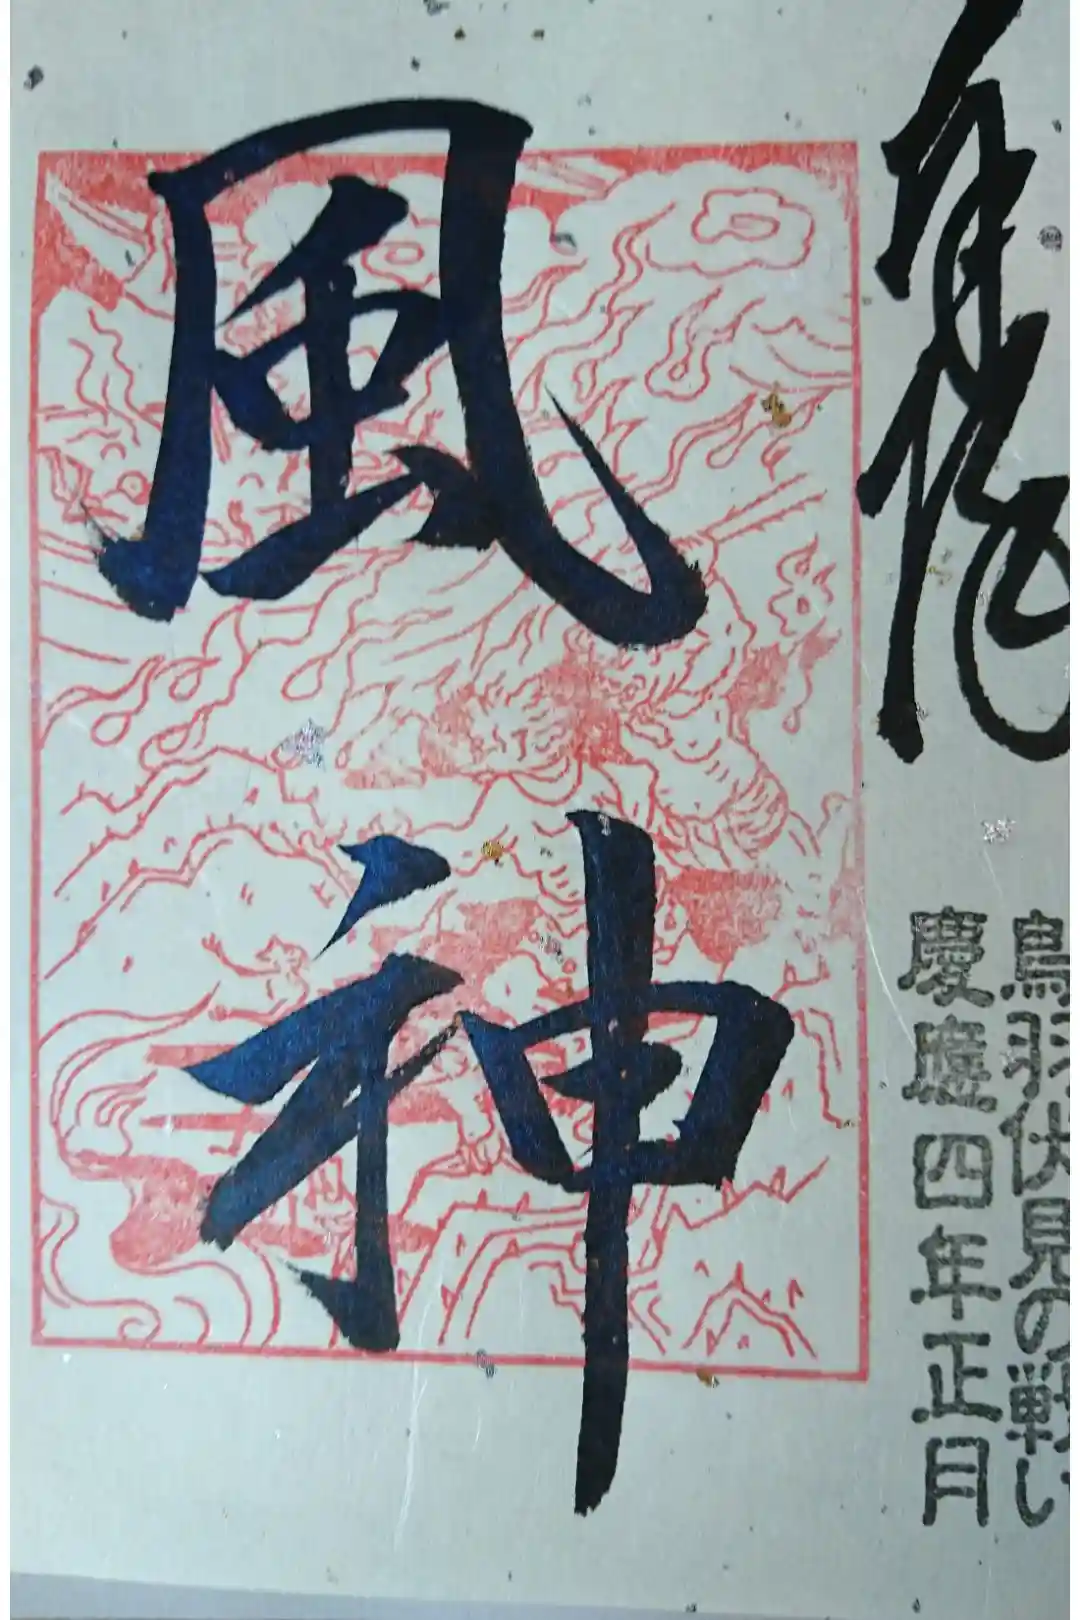 鳥羽伏見の戦い
慶應四年正月
風神